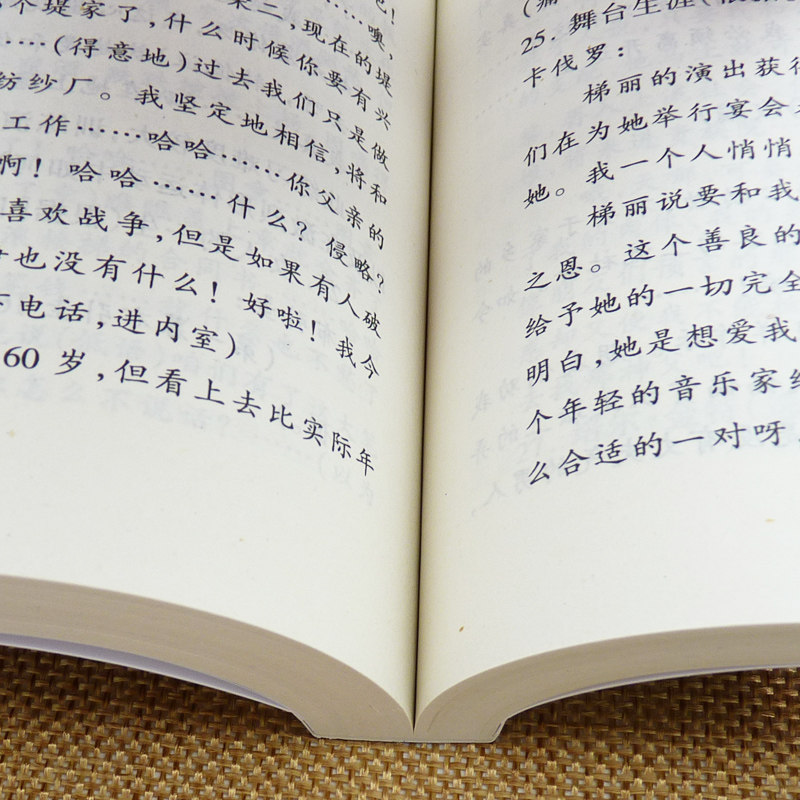 二,现在的堤
个堤家了,什么时候你要有兴
……(得意地)过去我们只是做
纺纱厂。我坚定地相信,将和
工作……哈哈……你父亲的
啊!哈哈……什么?侵略?
喜欢战争,但是如果有人破
也没有什么!好啦!我今
下电话,进内室)
60岁,但看上去比实际年
25.舞台生涯(
卡伐罗:
梯丽的演出获得
们在为她举行宴会
她。我一个人悄悄
梯丽说要和我
之恩。这个善良的
给予她的一切完全
明白,她是想爱我
个年轻的音乐家
么合适的一对呀